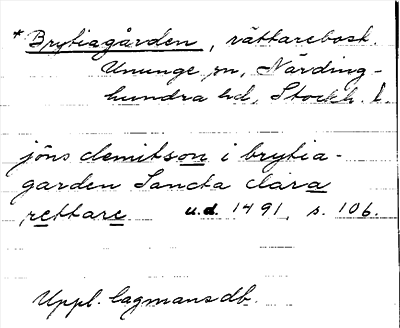 * Brytiagården, rättarebost.
Ununge sn, Närding-
hundra hd, Stockh. l.
jöns clemitson i brytia-
garden Sancta clara
rettare u.d. 1491, s. 106.
Uppl. lagmansdb.